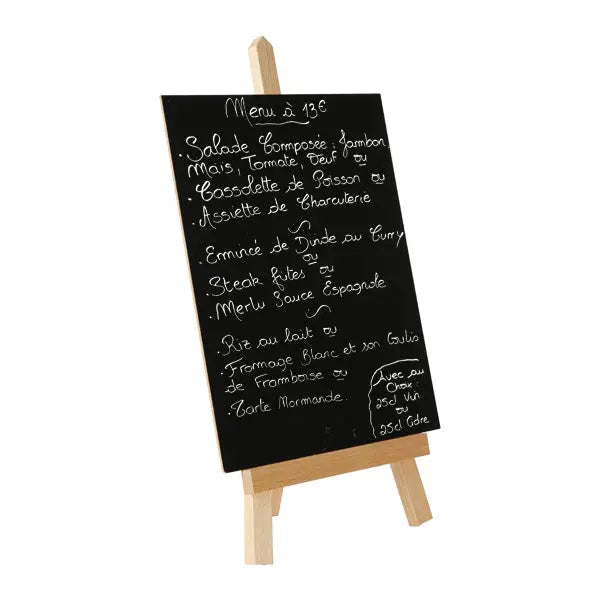 Menu à 13€
. Salade Composée : Jambon
Maïs, Tomate, Oeuf ou
. Cassolette de Poisson ou
. Assiette de Charcuterie
. Emincé de Dinde au Curry
ou
. Steak frites ou
. Merlu Sauce Espagnole
. Riz au lait ou
. Fromage Blanc et son Coulis
de Framboise ou
. Tarte Normande.
Avec au
Choix :
25cl Vin
ou
25cl Cidre